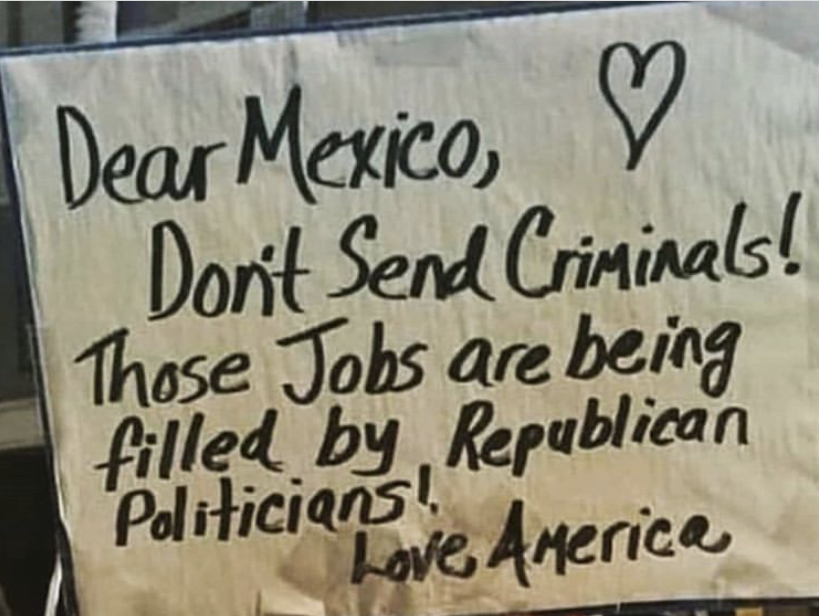 Dear Mexico,
Don't Send Criminals!
Those Jobs are being
filled by Republican
Politicians!
Love, America